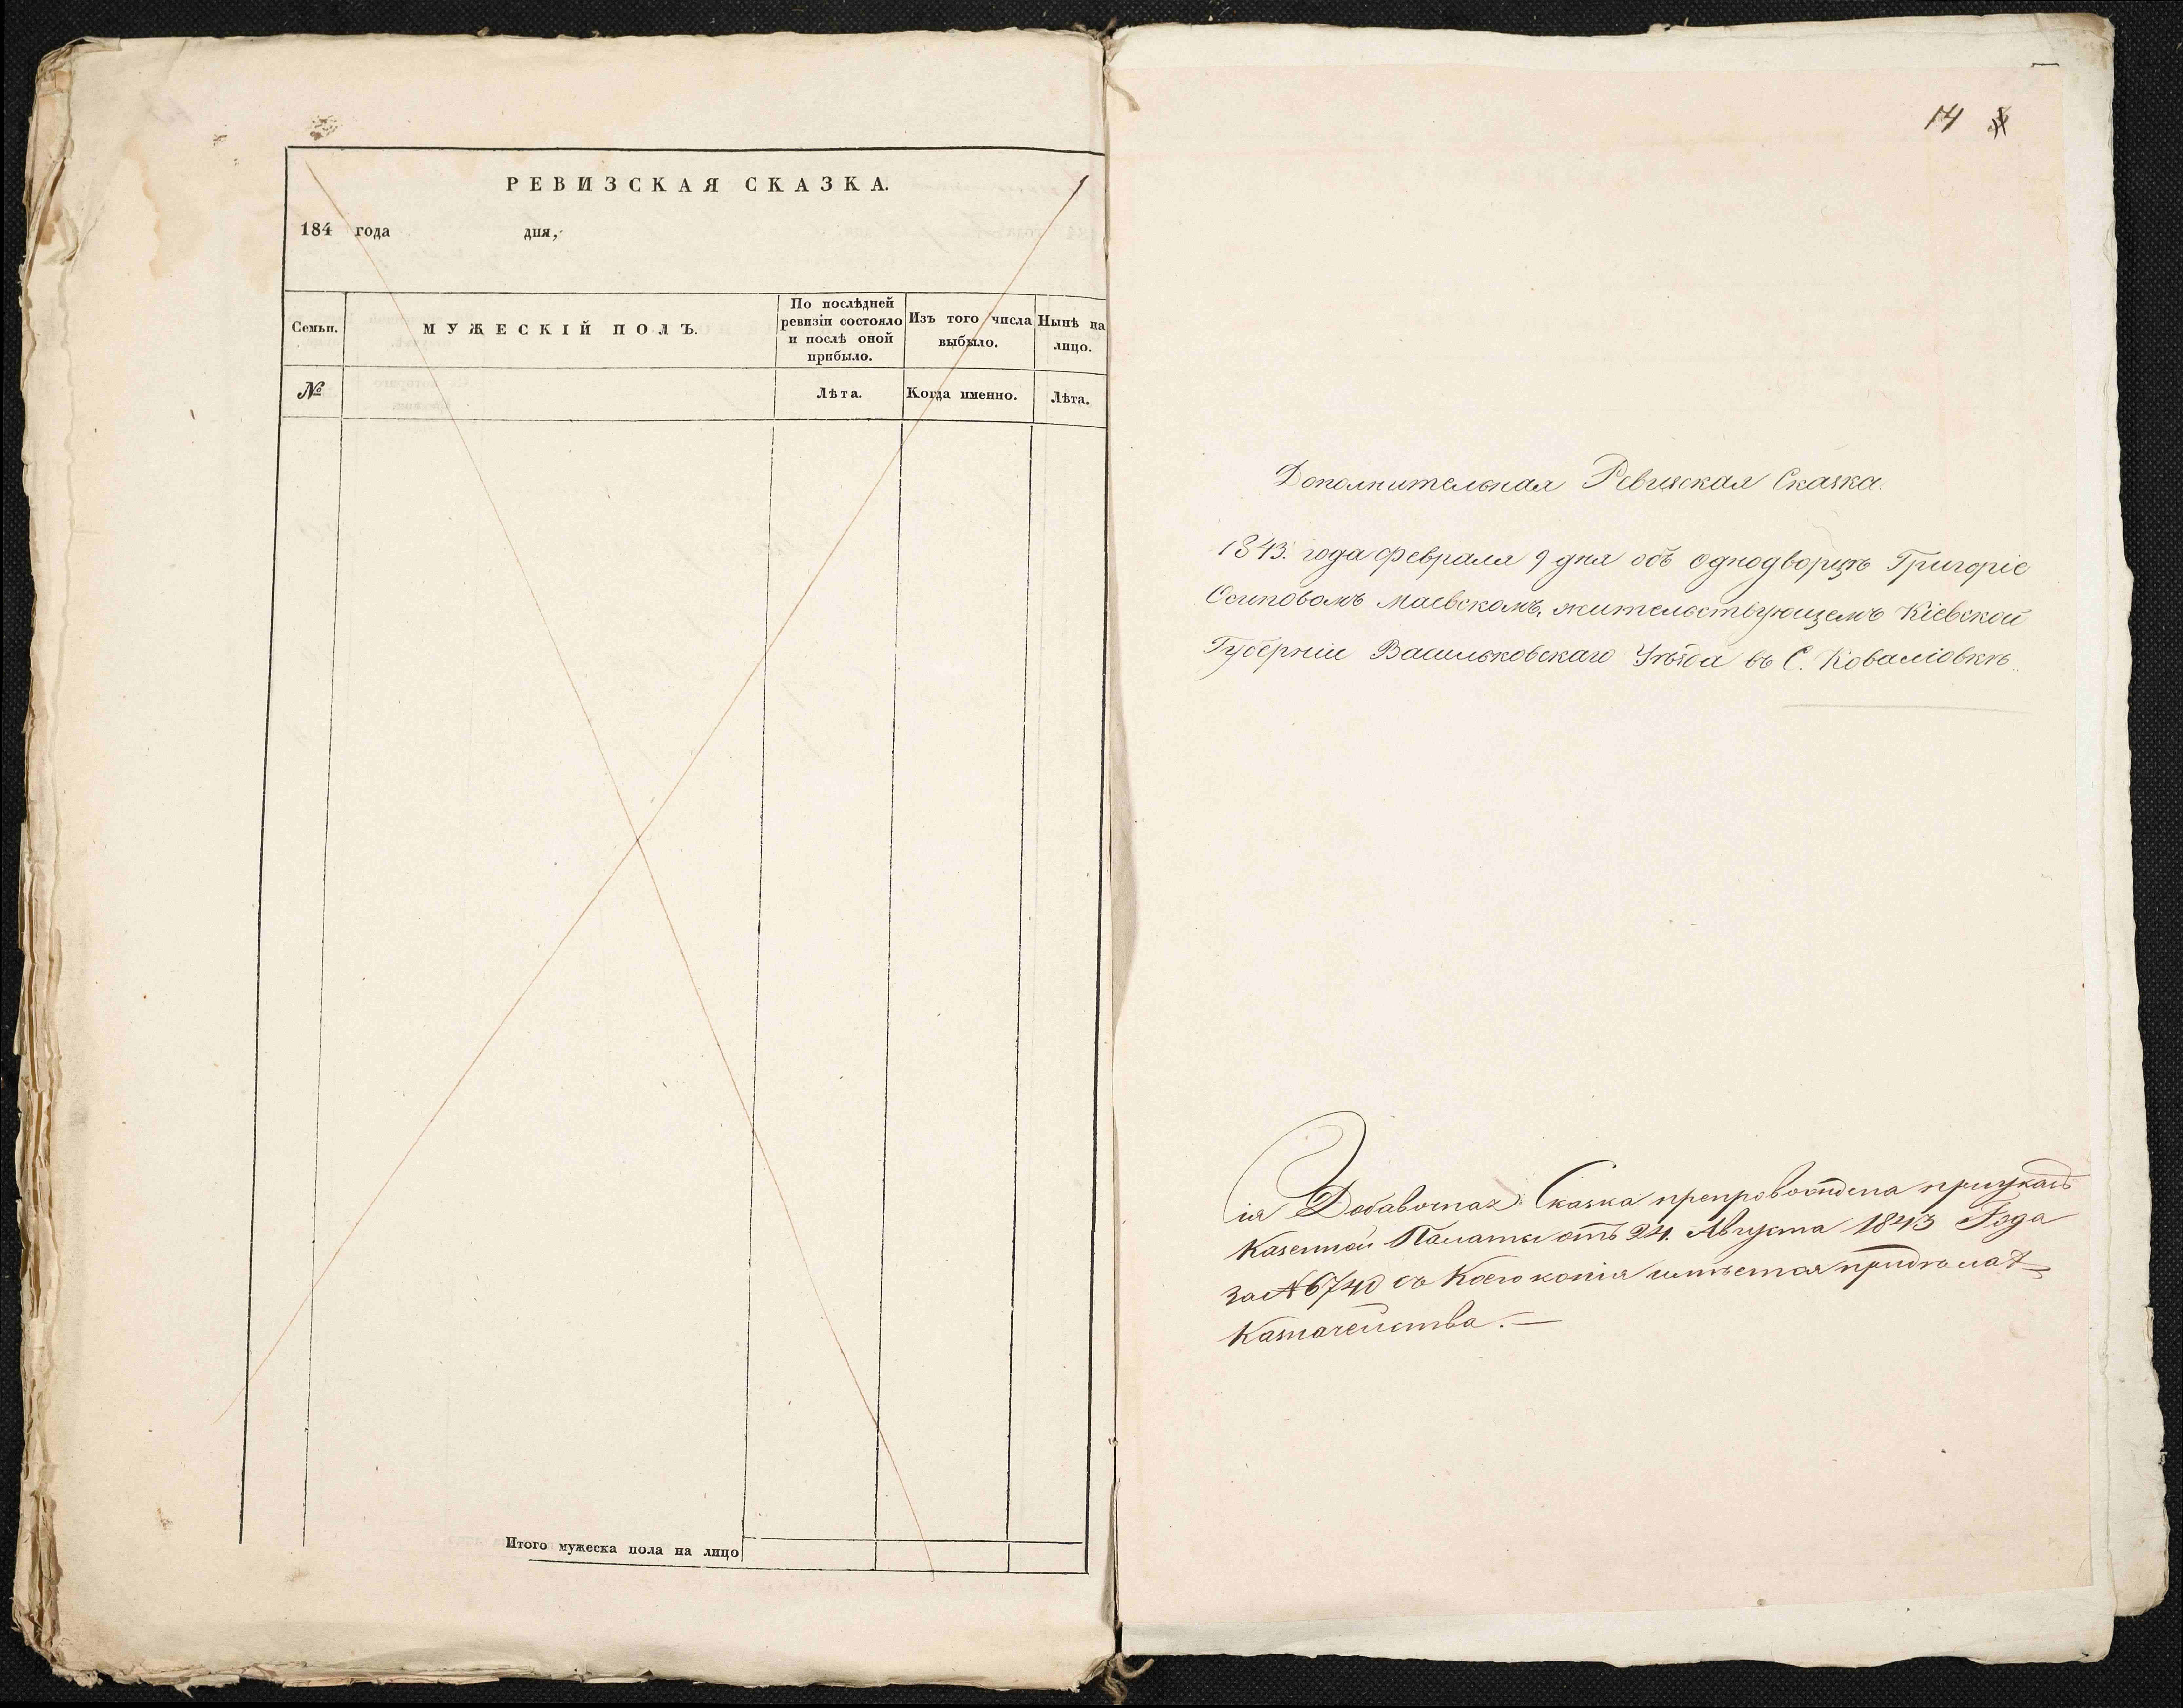 РЕВИЗСКАЯ СКАЗКА.
184 года дня,
Семьи.
МУЖЕСКІЙ ПОЛЪ.
По послѣдней
ревизіи состояло
и послѣ оной
прибыло.
Изъ того числа
выбыло.
Нынѣ на
лицо.
№
Лѣта.
Когда именно.
Лѣта.
Итого мужеска пола на лицо
14
Дополнительная Ревизская Сказка.
1843. года февраля 9 дня объ однодворцѣ Григоріе
Осиповомъ Маевскомъ, жительствующемъ Кіевской
Губерніи Васильковскаго Уѣзда въ С. Коваліовкѣ
Сія Добавочная Сказка препровождена при указѣ
Казенной Палаты отъ 24. Августа 1843 Года
за № 6740 съ Коего копія имѣется при дѣлах
Казначейства.—